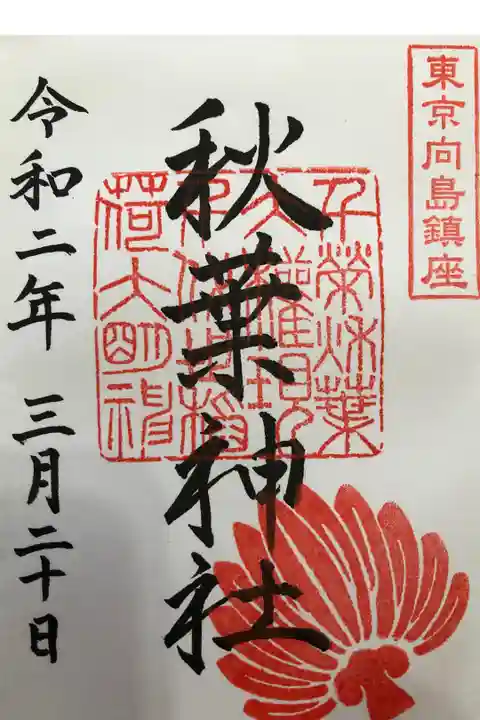 東京向島鎮座
秋葉神社
荷大明神
令和二年 三月二十日